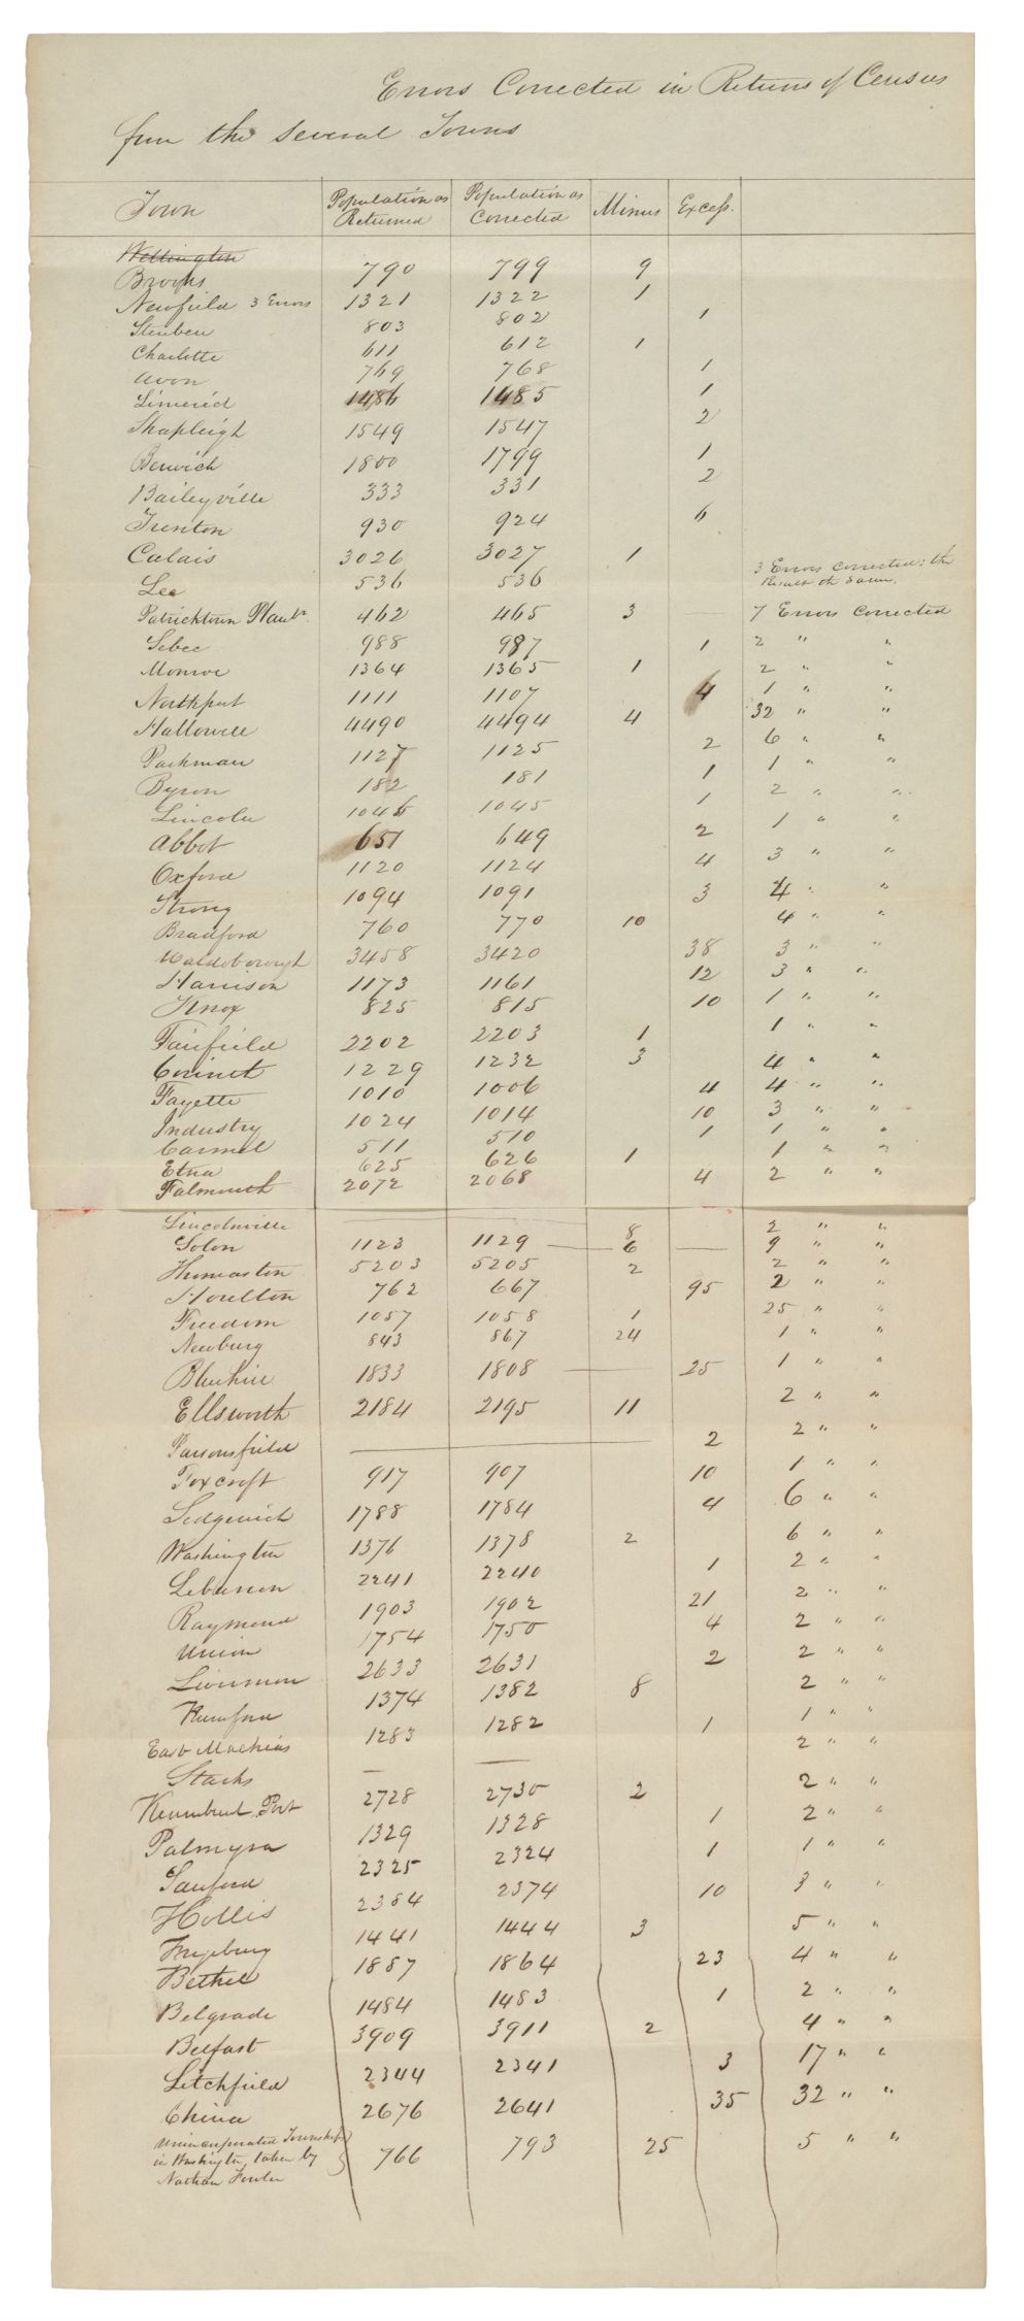 Errors Corrected in Returns of Census
from the Several Towns
Town Population as Returned Population as Corrected Minus Excess.
Wellington
Brooks 790 799 9
Newfield 3 Errors 1321 1322 1
Steuben 803 802 1
Charlotte 611 612 1
Avon 769 768 1
Limerick 1486 1485 1
Shapleigh 1549 1547 2
Berwick 1800 1799 1
Baileyville 333 331 2
Trenton 930 924 6
Calais 3026 3027 1
Lee 536 536 3 Errors corrected; the Result the same.
Patricktown Plantn. 462 465 3 7 Errors corrected
Sebec 988 987 1 2 " "
Monroe 1364 1365 1 2 " "
Northport 1111 1107 4 1 " "
Hallowell 4490 4494 4 32 " "
Parkman 1127 1125 2 6 " "
Byron 182 181 1 1 " "
Lincoln 1046 1045 1 2 " "
Abbot 651 649 2 1 " "
Oxford 1120 1124 4 3 " "
Strong 1094 1091 3 4 " "
Bradford 760 770 10 4 " "
Waldoborough 3458 3420 38 3 " "
Harrison 1173 1161 12 3 " "
Knox 825 815 10 1 " "
Fairfield 2202 2203 1 1 " "
Corinth 1229 1232 3 4 " "
Fayette 1010 1006 4 4 " "
Industry 1024 1014 10 3 " "
Carmel 511 510 1 1 " "
Etna 625 626 1 1 " "
Falmouth 2072 2068 4 2 " "
Lincolnville 8 2 " "
Solon 1123 1129 6 9 " "
Thomaston 5203 5205 2 2 " "
Houlton 762 667 95 2 " "
Freedom 1057 1058 1 25 " "
Newburg 843 867 24 1 " "
Bluehill 1833 1808 25 1 " "
Ellsworth 2184 2195 11 2 " "
Parsonsfield 2 2 " "
Foxcroft 917 907 10 1 " "
Sedgwick 1788 1784 4 6 " "
Washington 1376 1378 2 6 " "
Lebanon 2241 2240 1 2 " "
Raymond 1903 1902 21 2 " "
Union 1754 1750 4 2 " "
Livermore 2633 2631 2 2 " "
Rumford 1374 1382 8 2 " "
East Machias 1283 1282 1 1 " "
Starks — — 2 " "
Kennebunk Port 2728 2730 2 2 " "
Palmyra 1329 1328 1 2 " "
Sanford 2325 2324 1 1 " "
Hollis 2384 2374 10 3 " "
Fryeburg 1441 1444 3 5 " "
Bethel 1887 1864 23 4 " "
Belgrade 1484 1483 1 2 " "
Belfast 3909 3911 2 4 " "
Litchfield 2344 2341 3 17 " "
China 2676 2641 35 32 " "
Unincorporated Townships
in Washington, taken by 766 793 25 5 " "
Nathan Fowler